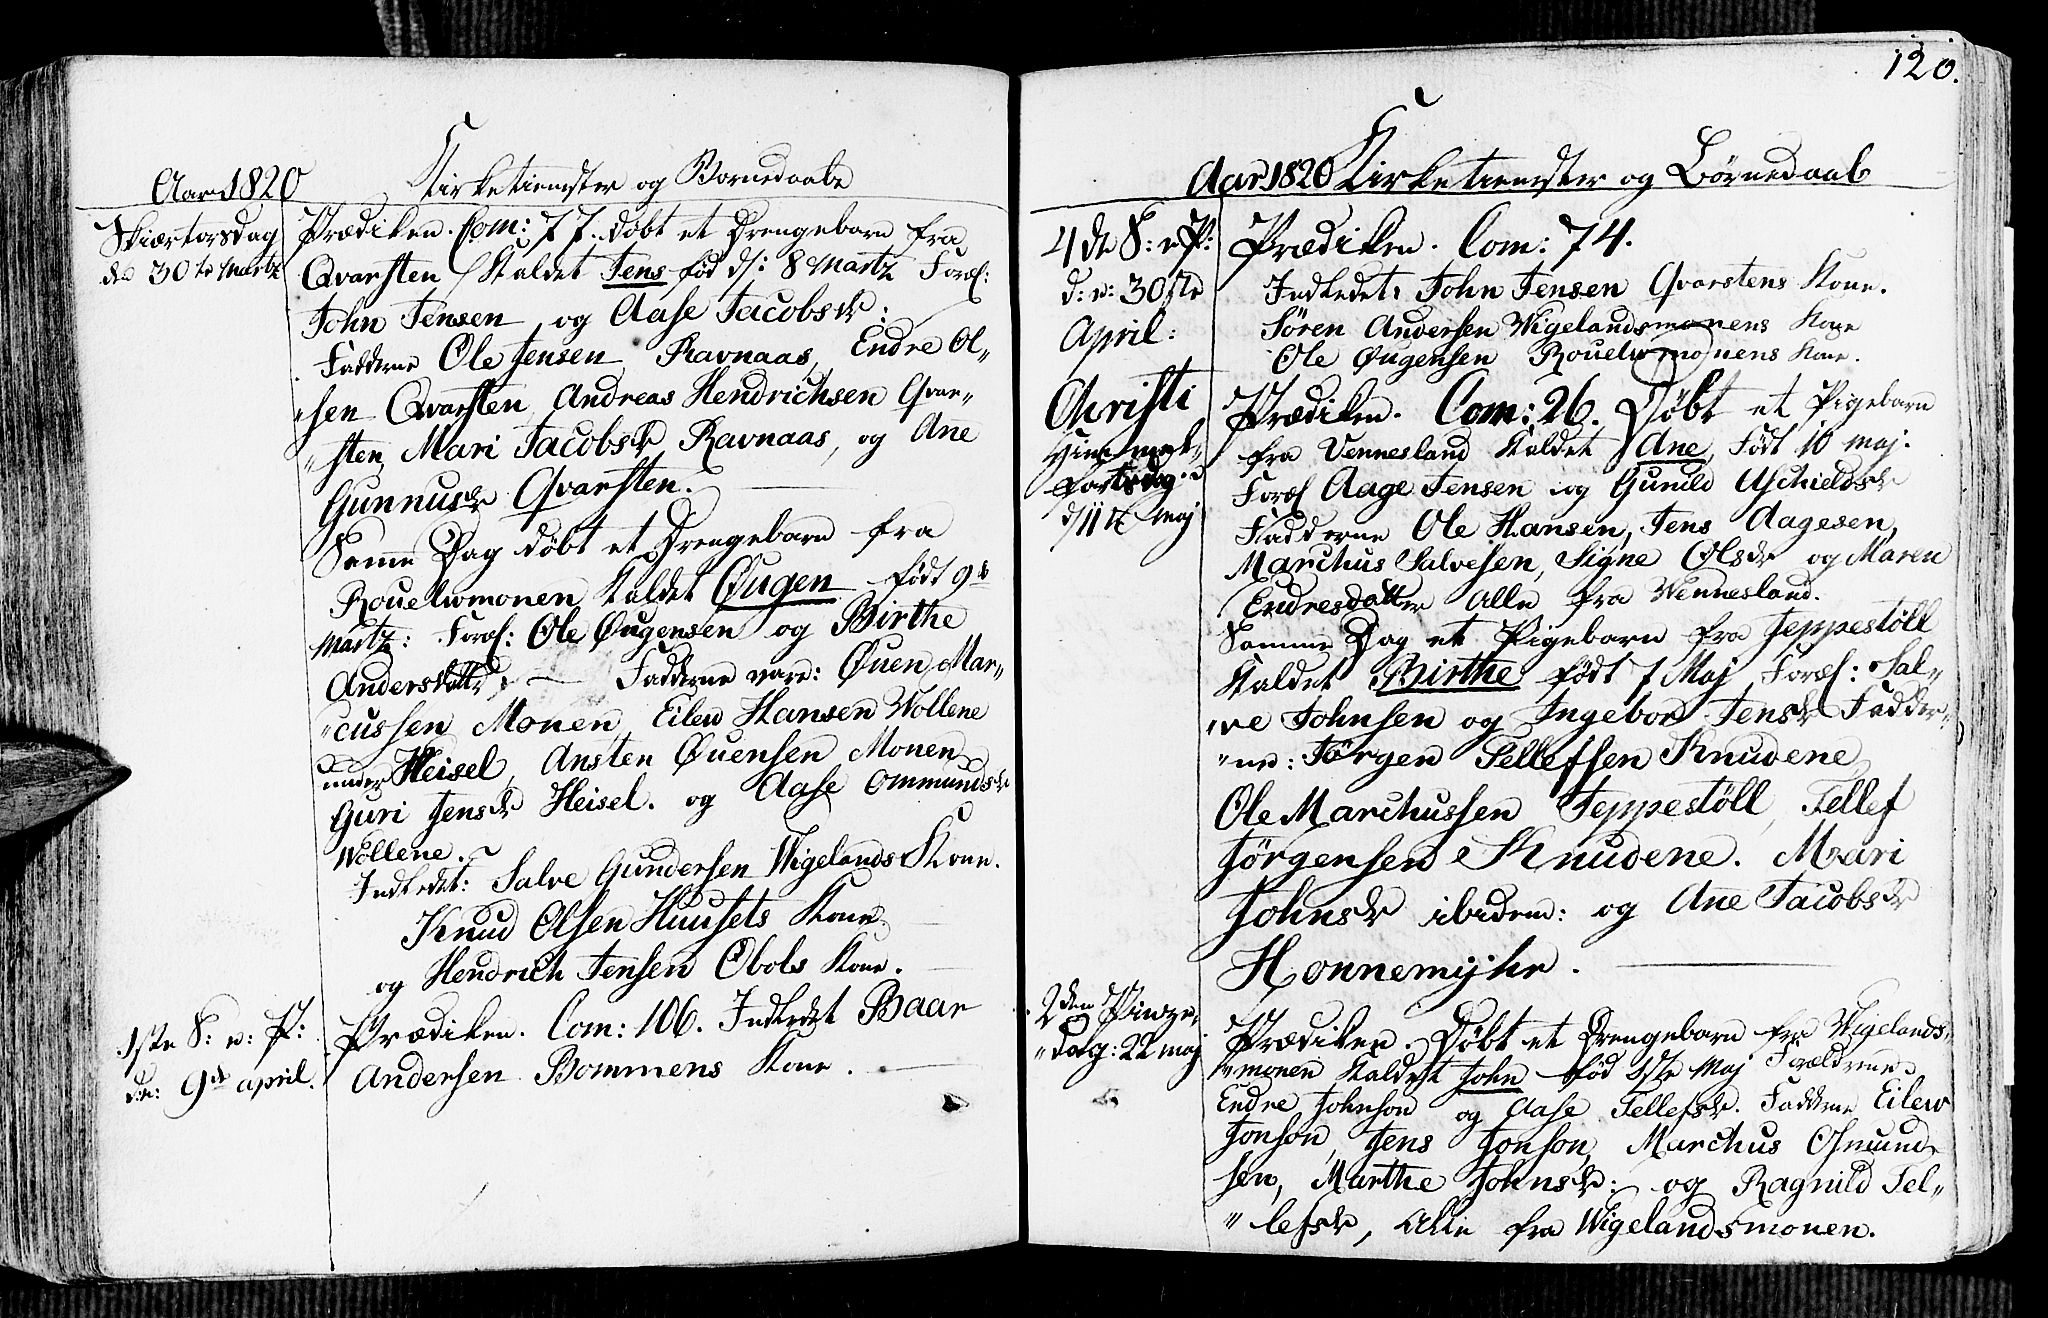 Aar 1820
Kirketienester og Bornedaabe
Skiærtorsdag
d: 30te Martz
Prædiken. Com: 77. døbt et Drengebarn fra
Qvarsten Kaldet Jens fød d: 8 Martz Foræl:
John Jensen og Aase Jacobsdr:
Fadderne Ole Jensen Ravnaas, Endre Ol„
„sen Qvarsten, Andreas Hendrichsen Qvar„
„sten, Mari Jacobsdr Ravnaas, og Ane
Gunnusdr Qvarsten.
Samme Dag døbt et Drengebarn fra
Rouelwmonen Kaldet Øugen født 9de
Martz: Foræl: Ole Øugensen og Birthe
Andersdattr: — Fadderne vare: Øuen Mar„
„cussen Monen, Eilew Hansen Wollene
under Heisel, Ansten Øuensen Monen
Guri Jensdr Heisel. og Aase Ommundsdr
Wollene.
Indledet: Salve Gundersen Wigelands Kone.
Knud Olsen Huusets Kone
og Hendrich Jensen Obols Kone.
1ste S: e: P:
d: 9de april.
Prædiken. Com: 106. Indledet Baar
Andersen Bommens Kone.
120.
Aar 1820 Kirketienester og Børnedaab
4de S: e P:
d: 30ste
April:
Prædiken. Com: 74.
Indledet: John Jensen Qvarstens Kone.
Søren Andersen Wigelandsmonens Kone
Ole Øugensen Rouelwmonens Kone.
Christi
Himmel„
fartsdag
d/11te Maj
Prædiken. Com: 26. Døbt et Pigebarn
fra Vennesland Kaldet Ane, Født 10 maj.
Foræl Aage Jensen og Gunild Aschieldsdr
Fadderne Ole Hansen, Jens Aagesen,
Marchus Salvesen, Signe Olsdr og Maren
Endresdatter Alle fra Wennesland.
Samme Dag et Pigebarn fra Jeppestøll
Kaldet Birthe født 7 Maj Foræl: Sal„
„ve Johnsen og Ingebor Jensdr Fadder„
„ne: Jørgen Tellefsen Knudene
Ole Marchussen Jeppestøll, Tellef
Jørgensen Knudene. Mari
Johnsdr ibidem: og Ane Jacobsdr
Honnemyhr.
2den Pintze„
„dag: 22 maj
Prædiken. Døbt et Drengebarn fra Wigelands„
„monen Kaldet John fød 1ste Maj Forældrene
Endre Johnson og Aase Tellefsdr. Fadderne Eilew
Jonson, Jens Jonson, Marchus Osmund
sen, Marthe Johnsdr: og Ragnild Tel„
„lefsdr, Alle fra Wigelandsmonen.